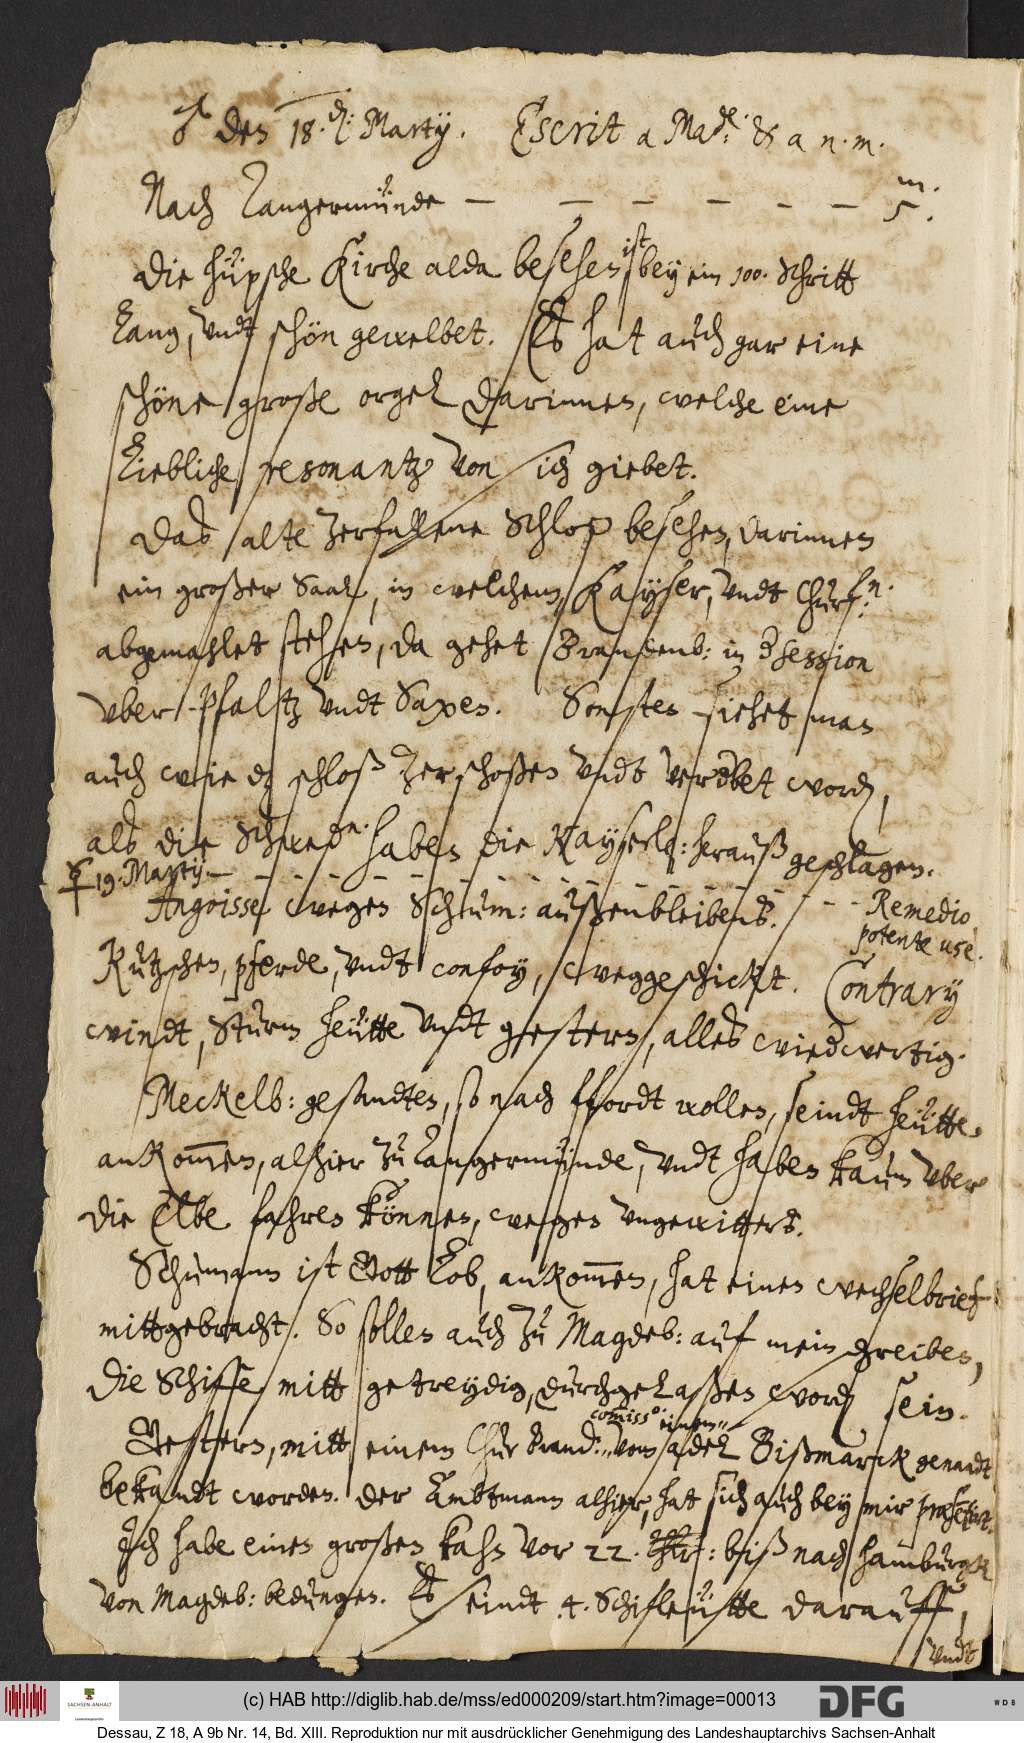 ♂ den 18. d: Martij. Escrit a Made: & a n. m.
Nach Tangermünde — — — — — — 5. m.
Die hüpsche Kirche alda besehen, ist bey ein 100. Schritt
lang, vndt schön gewelbet. Es hat auch gar eine
schöne große orgel darinnen, welche eine
liebliche resonantz von sich giebet.
Das alte zerfallene Schloß besehen, darinnen
ein großer Saal, in welchem, Kayser, vndt Churf.n:
abgemahlet stehen, da gehet Brandenb: in der session
vber Pfaltz vndt Saxen. Sonsten siehet man
auch wie dz schloß zerschoßen vndt verderbet word,
als die Schweden. haben die Kayserl: herauß geschlagen.
☿ 19. Martij — — — — — — — — — — — —
Angoisse wegen Schum: außenbleibens. - - - Remedio
potente use.
Kutzschen, pferde, vndt confoy, weggeschickt. Contrary
windt, Sturm heütte vndt gestern, alles wiederwertig.
Meckelb: gesandten, so nach ffordt wollen, seindt heütte
ankommen, alhier zu Tangermünde, vndt haben kaum vber
die Elbe fahren können, wegen vngewitters.
Schumann ist Gott lob, ankommen, hat einen wechselbrief
mittgebracht. So sollen auch zu Magdeb: auf mein schreiben,
die Schiffe, mitt getreydig, durchgelaßen word sein.
Gestern, mitt einem Chur brand: comisso: einem vom adel Bißmarck genandt
bekandt worden. der Ambtmann alhier, hat sich auch bey mir præsentirt.
Ich habe einen großen kahn vor 22. Thlr: biß nach hamburgk
von Magdeb: bedungen. Es seindt 4. Schifleütte darauff,
vndt
(c) HAB http://diglib.hab.de/mss/ed000209/start.htm?image=00013
SACHSEN-ANHALT
DFG
WDB
Dessau, Z 18, A 9b Nr. 14, Bd. XIII. Reproduktion nur mit ausdrücklicher Genehmigung des Landeshauptarchivs Sachsen-Anhalt